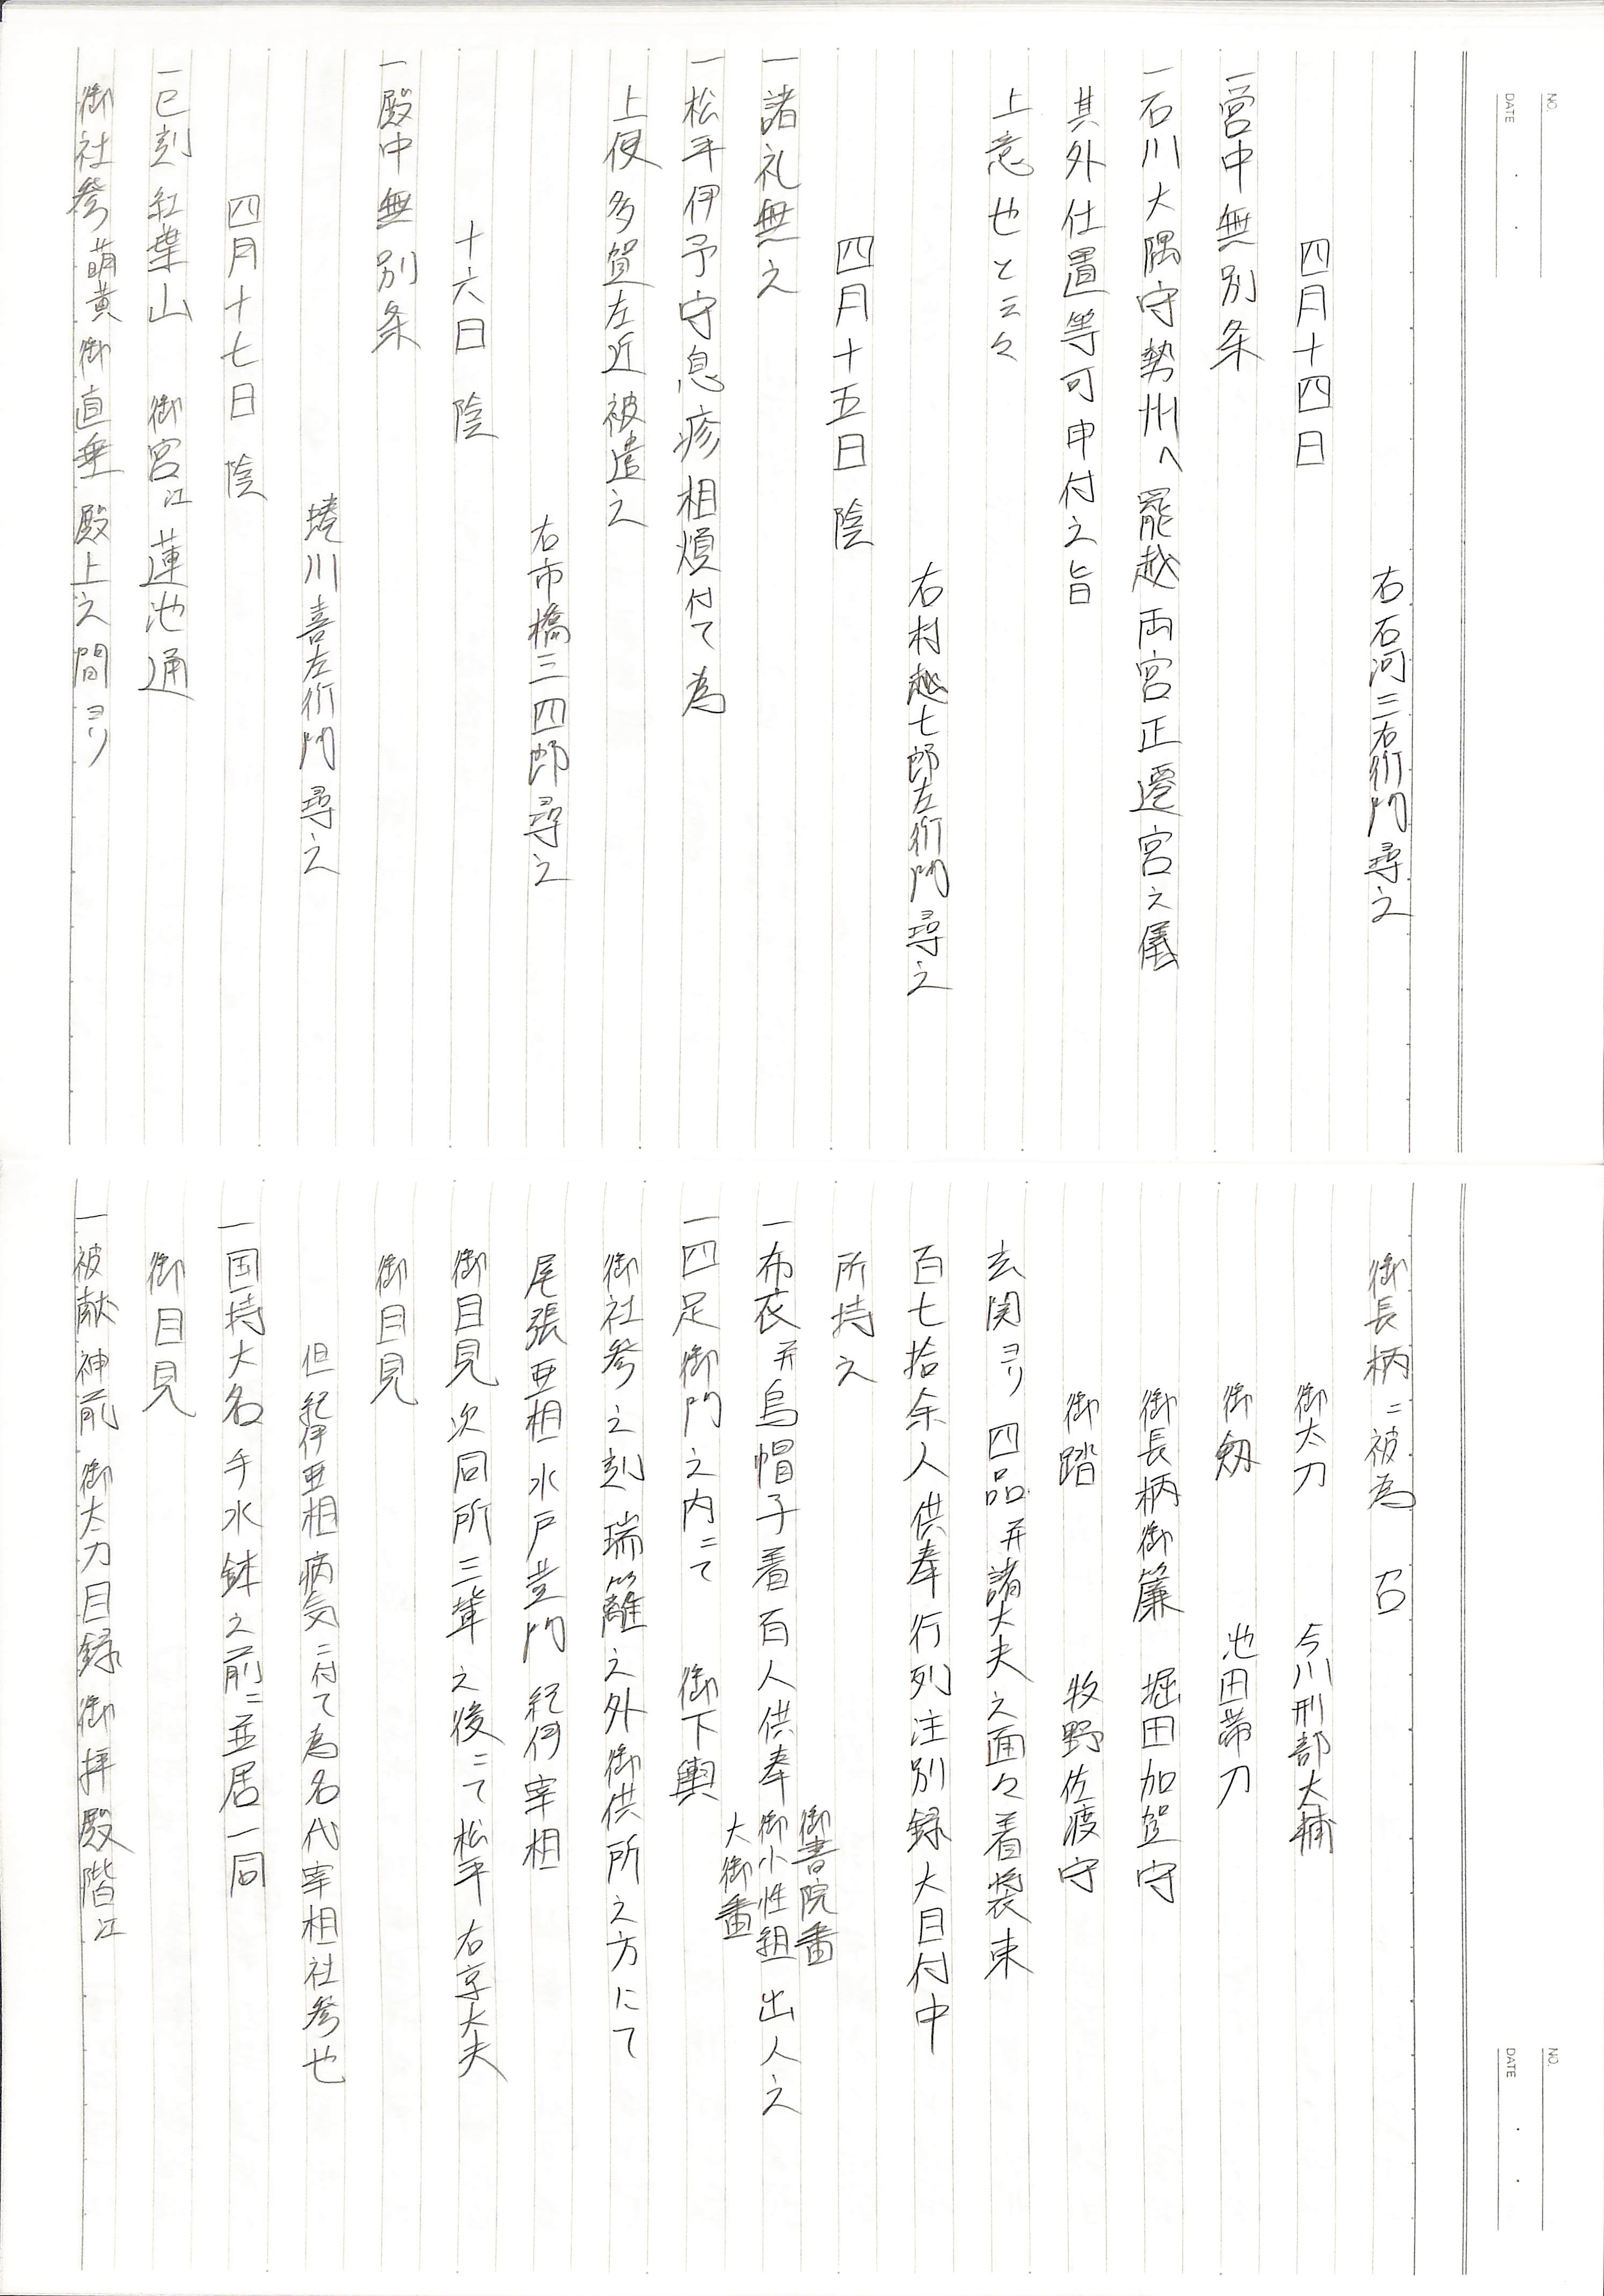 NO.
DATE
右石河三右衛門尋之
四月十四日
一宮中無別条
一石川大隅守勢州へ罷越両宮正遷宮之儀
其外仕置等可申付之旨
上意也と云々
右村越七郎左衛門尋之
四月十五日 陰
一諸礼無之
一松平伊予守息疹相煩付て為
上使多賀左近被遣之
右市橋三四郎尋之
十六日 陰
一殿中無別条
蜷川喜左衛門尋之
四月十七日 陰
一巳刻紅葉山 御宮江蓮池通
御社参萌黄御直垂殿上之間ヨリ
NO.
DATE
御長柄ニ被為 召
御太刀 今川刑部大輔
御剱 池田帯刀
御長柄御簾 堀田加賀守
御踏 牧野佐渡守
玄関ヨリ四品并諸大夫之面々着装束
百七拾余人供奉行列注別録大目付中
所持之
一布衣并烏帽子着百人供奉御書院番御小性組大御番出人之
一四足御門之内ニて 御下輿
御社参之刻瑞籬之外御供所之方にて
尾張亜相水戸黄門紀伊宰相
御目見次同所三輩之後ニて松平右京大夫
御目見
但紀伊亜相病気ニ付て為名代宰相社参也
一国持大名手水鉢之前ニ並居一同
御目見
一被献神前御太刀目録御拝殿階江